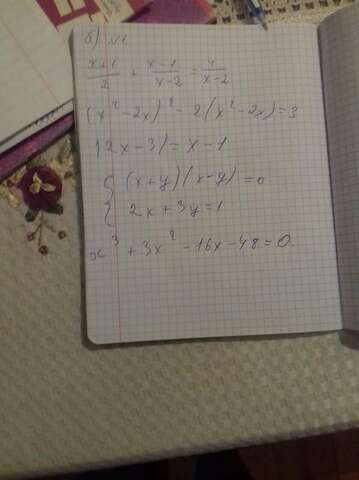 б) №1
(x+1)/2 + (x-1)/(x-2) = 4/(x-2)
(x²-2x)² - 2(x²-2x) = 3
|2x-3| = x-1
{ (x+y)(x-y) = 0
2x+3y=1
x³+3x²-16x-48=0